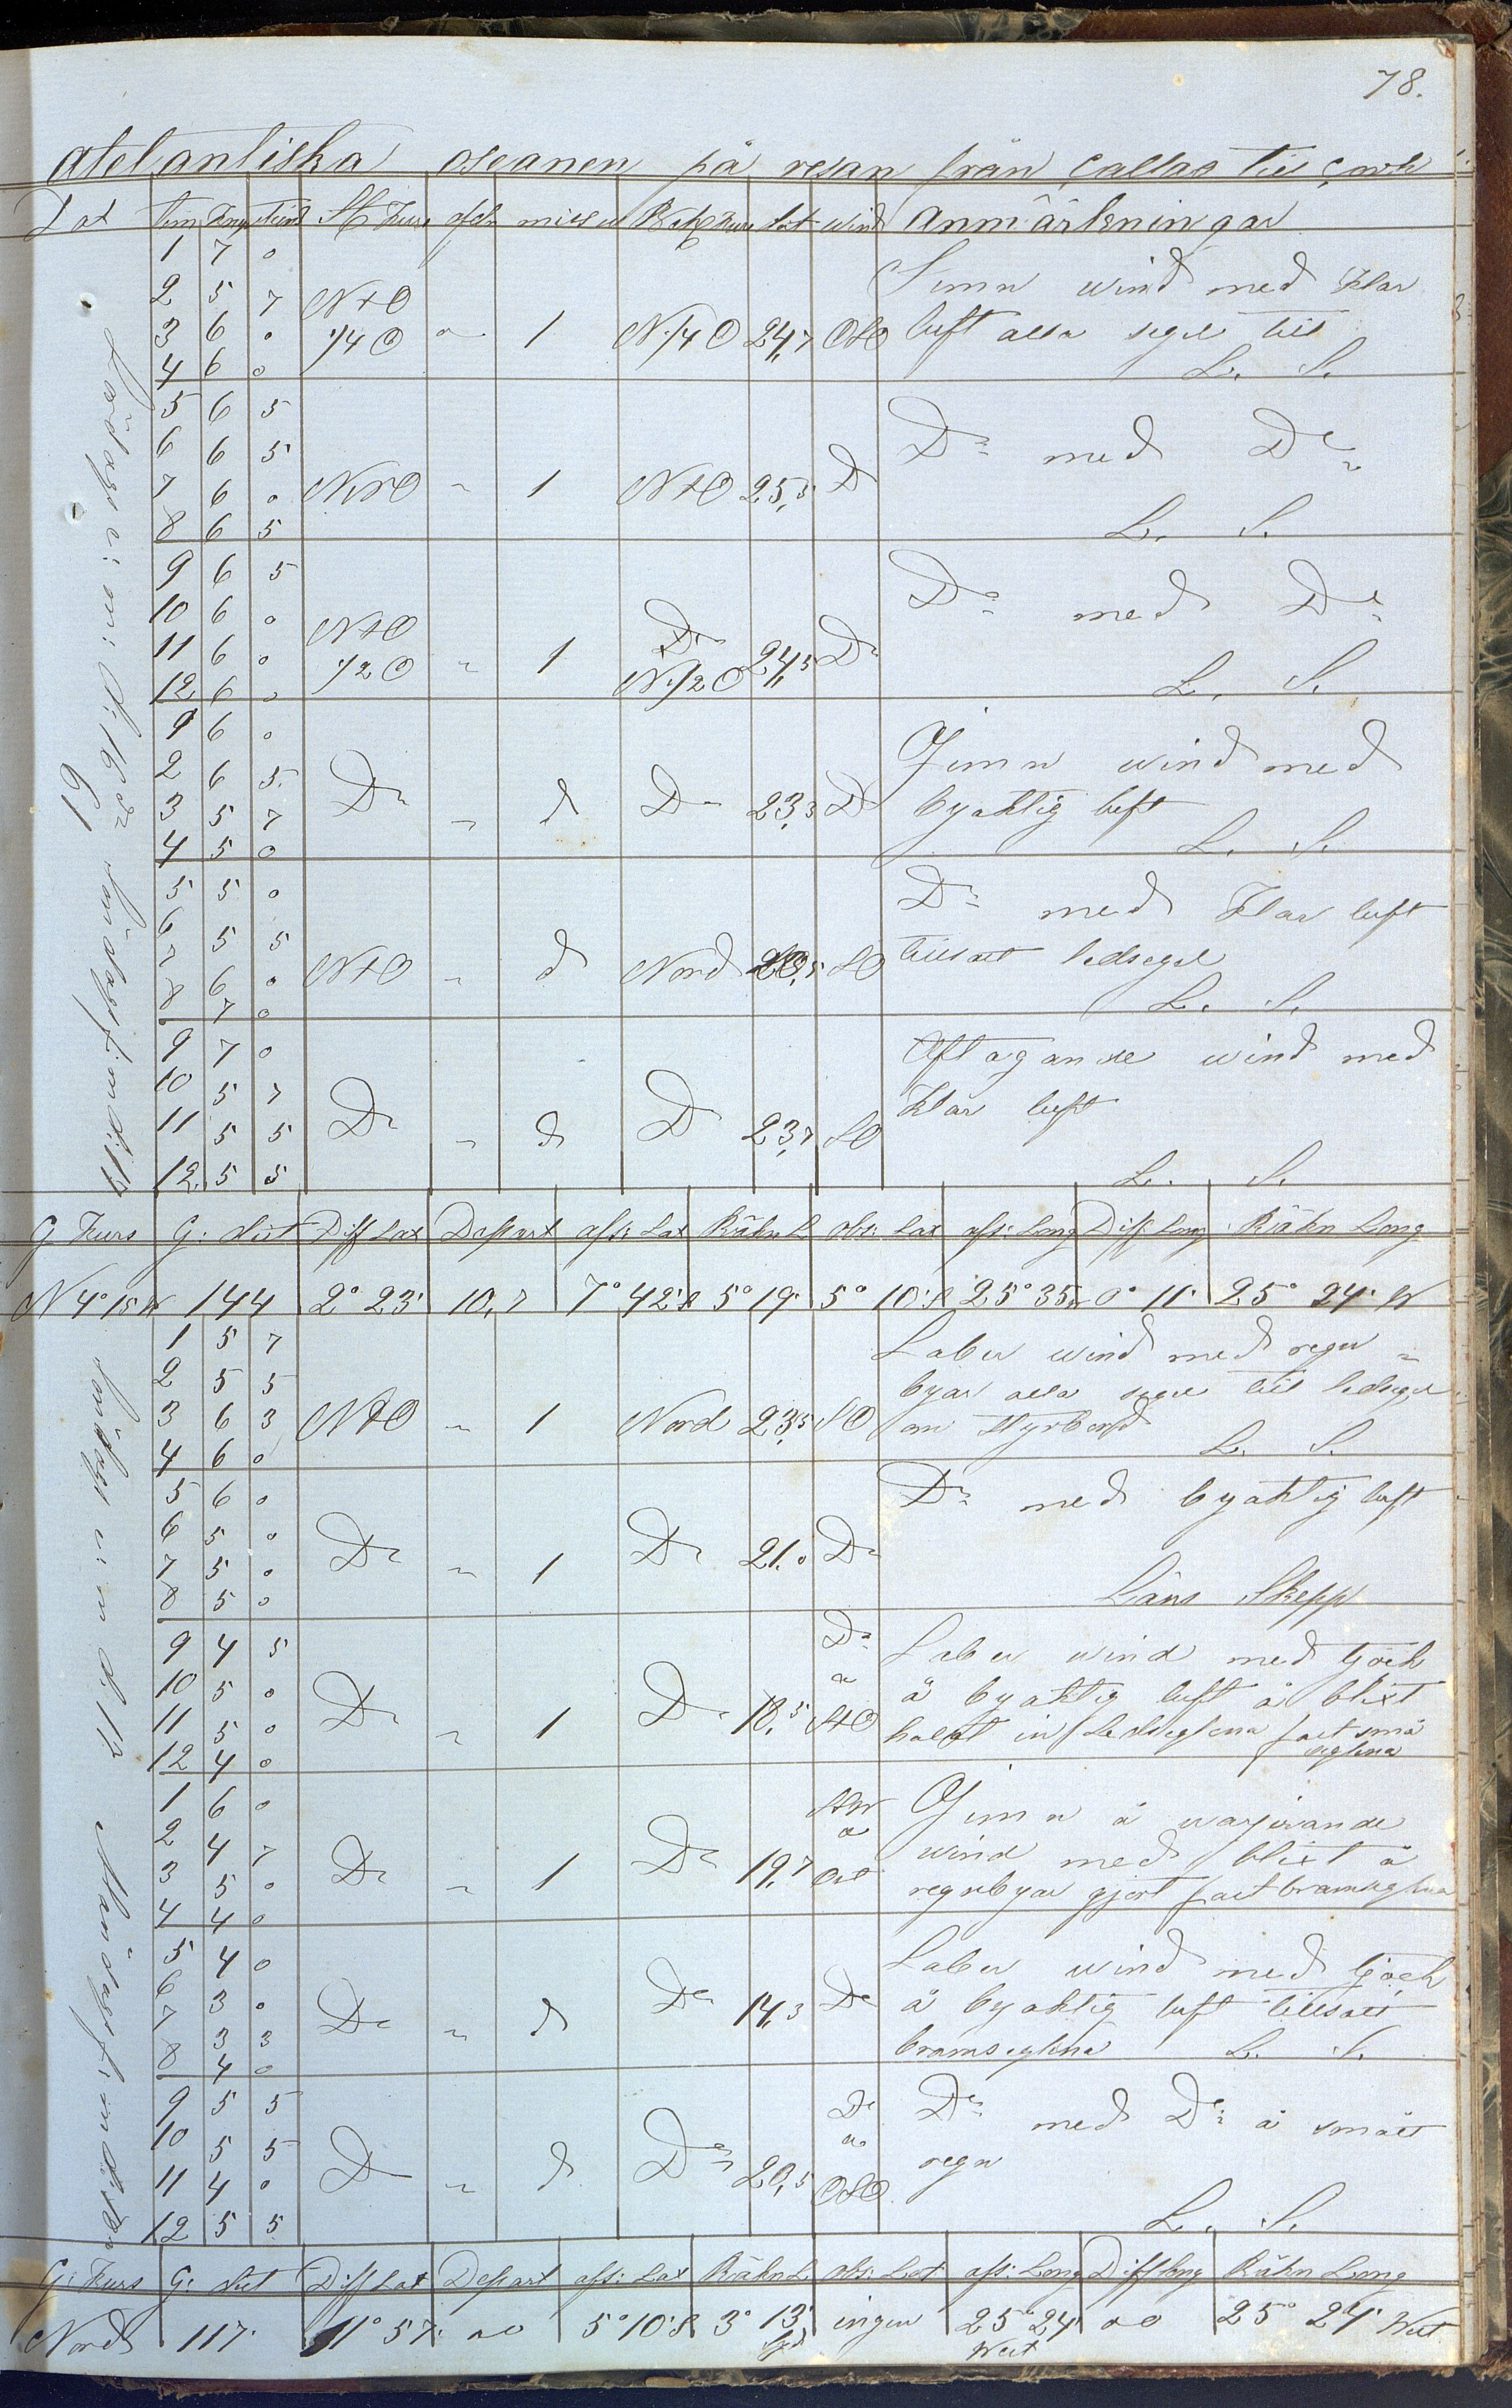 78.
atelantiska oseanen på resan från Callao till Cork
Dat tim knop tiend St Kurs afdr miss v Beh Kurs dist wind anmärkningar
1 7 0
2 5 7 N t O Jemn wind med Klar
3 6 0 1/4 O " 1 N 1/4 O 24,7 OSO luft alla segel till
4 6 0 L. S.
5 6 5
6 6 5 Do med Do
7 6 0 NNO " 1 N t O 25,5 D
8 6 5 L. S.
9 6 5
10 6 0 N t O Do Do med Do
11 6 0 1/2 O " 1 N 1/2 O 24,5 Do
12 6 0 L. S.
1 6 0 Jemn wind med
2 6 5
3 5 7 Do " d Do 23,3 D byaktig luft
4 5 0 L. S.
5 5 0 Do med Klar luft
6 5 5
7 6 0 N t O " d Nord SO tillsatt ledsegel
8 7 0 L. S.
9 7 0 Aftagande wind med
10 5 7 Klar luft
11 5 5 Do " d D 23,7 SO
12 5 5 L. S.
Lördag e: m: d: 16de Söndag f: m d: 17
19
G Kurs G: dist Diff Lat Depart aff: Lat Räkn L obs: Lat aff: Long Diff: Long Räkn Long
N 4° 15 W 144 2° 23' 10,7 7° 42' S 5° 19' 5° 10' S 25° 35 0° 11' 25° 24' W
1 5 7 Laber wind med regn
2 5 5 byar alla segel till ledsegel
3 6 3 N t O " 1 Nord 23,5 SO om Styrbord
4 6 0 L. S.
5 6 0 Do med byaktig luft
6 5 0
7 5 0 Do " 1 Do 21,0 Do
8 5 0 Läns Skepp
9 4 5 Do Laber wind med tjock
10 5 0 å å byaktig luft å blixt
11 5 0 Do " 1 Do 18,5 StO halat in Ledseglena fast små
12 4 0 seglena
1 6 0 Jemn å warjerande
2 4 7 å wind med blixt å
3 5 0 Do " 1 Do 19,7 Ost regnbyar gjort fast bramseglena
4 4 0
5 4 0 Laber wind med tjock
6 3 0
7 3 3 Do " d Do 14,3 Do å byaktig luft tillsatt
8 4 0 bramseglena L. S.
9 5 5 Do Do med Do å smått
10 5 5 å regn
11 4 0 Do " d Do 20,5 OSO
12 5 5 L. S.
Söndag e: m d: 17 Måndag f: m d: 18
G: Kurs G: dist Diff Lat Depart aff: Lat Räkn L obs: Lat aff: Long Diff long Räkn Long
Nord 117' 1° 57' 00 5° 10' S 3° 13' Syd ingen 25° 24' West 00 25° 24' West